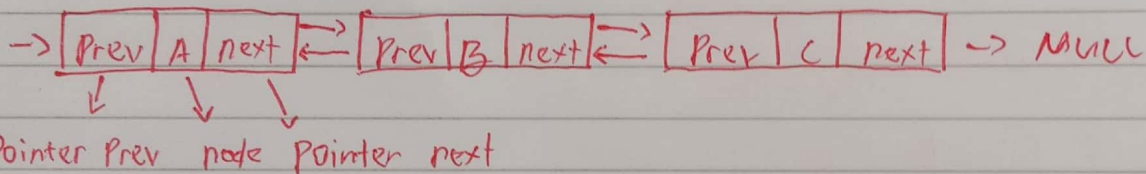 → Prev A next ⇄ Prev B next ⇄ Prev C next → NULL
Pointer Prev node Pointer next